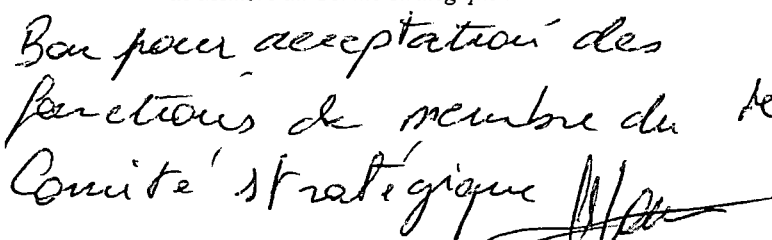 Bon pour acceptation des
fonctions de membre du
Comité stratégique